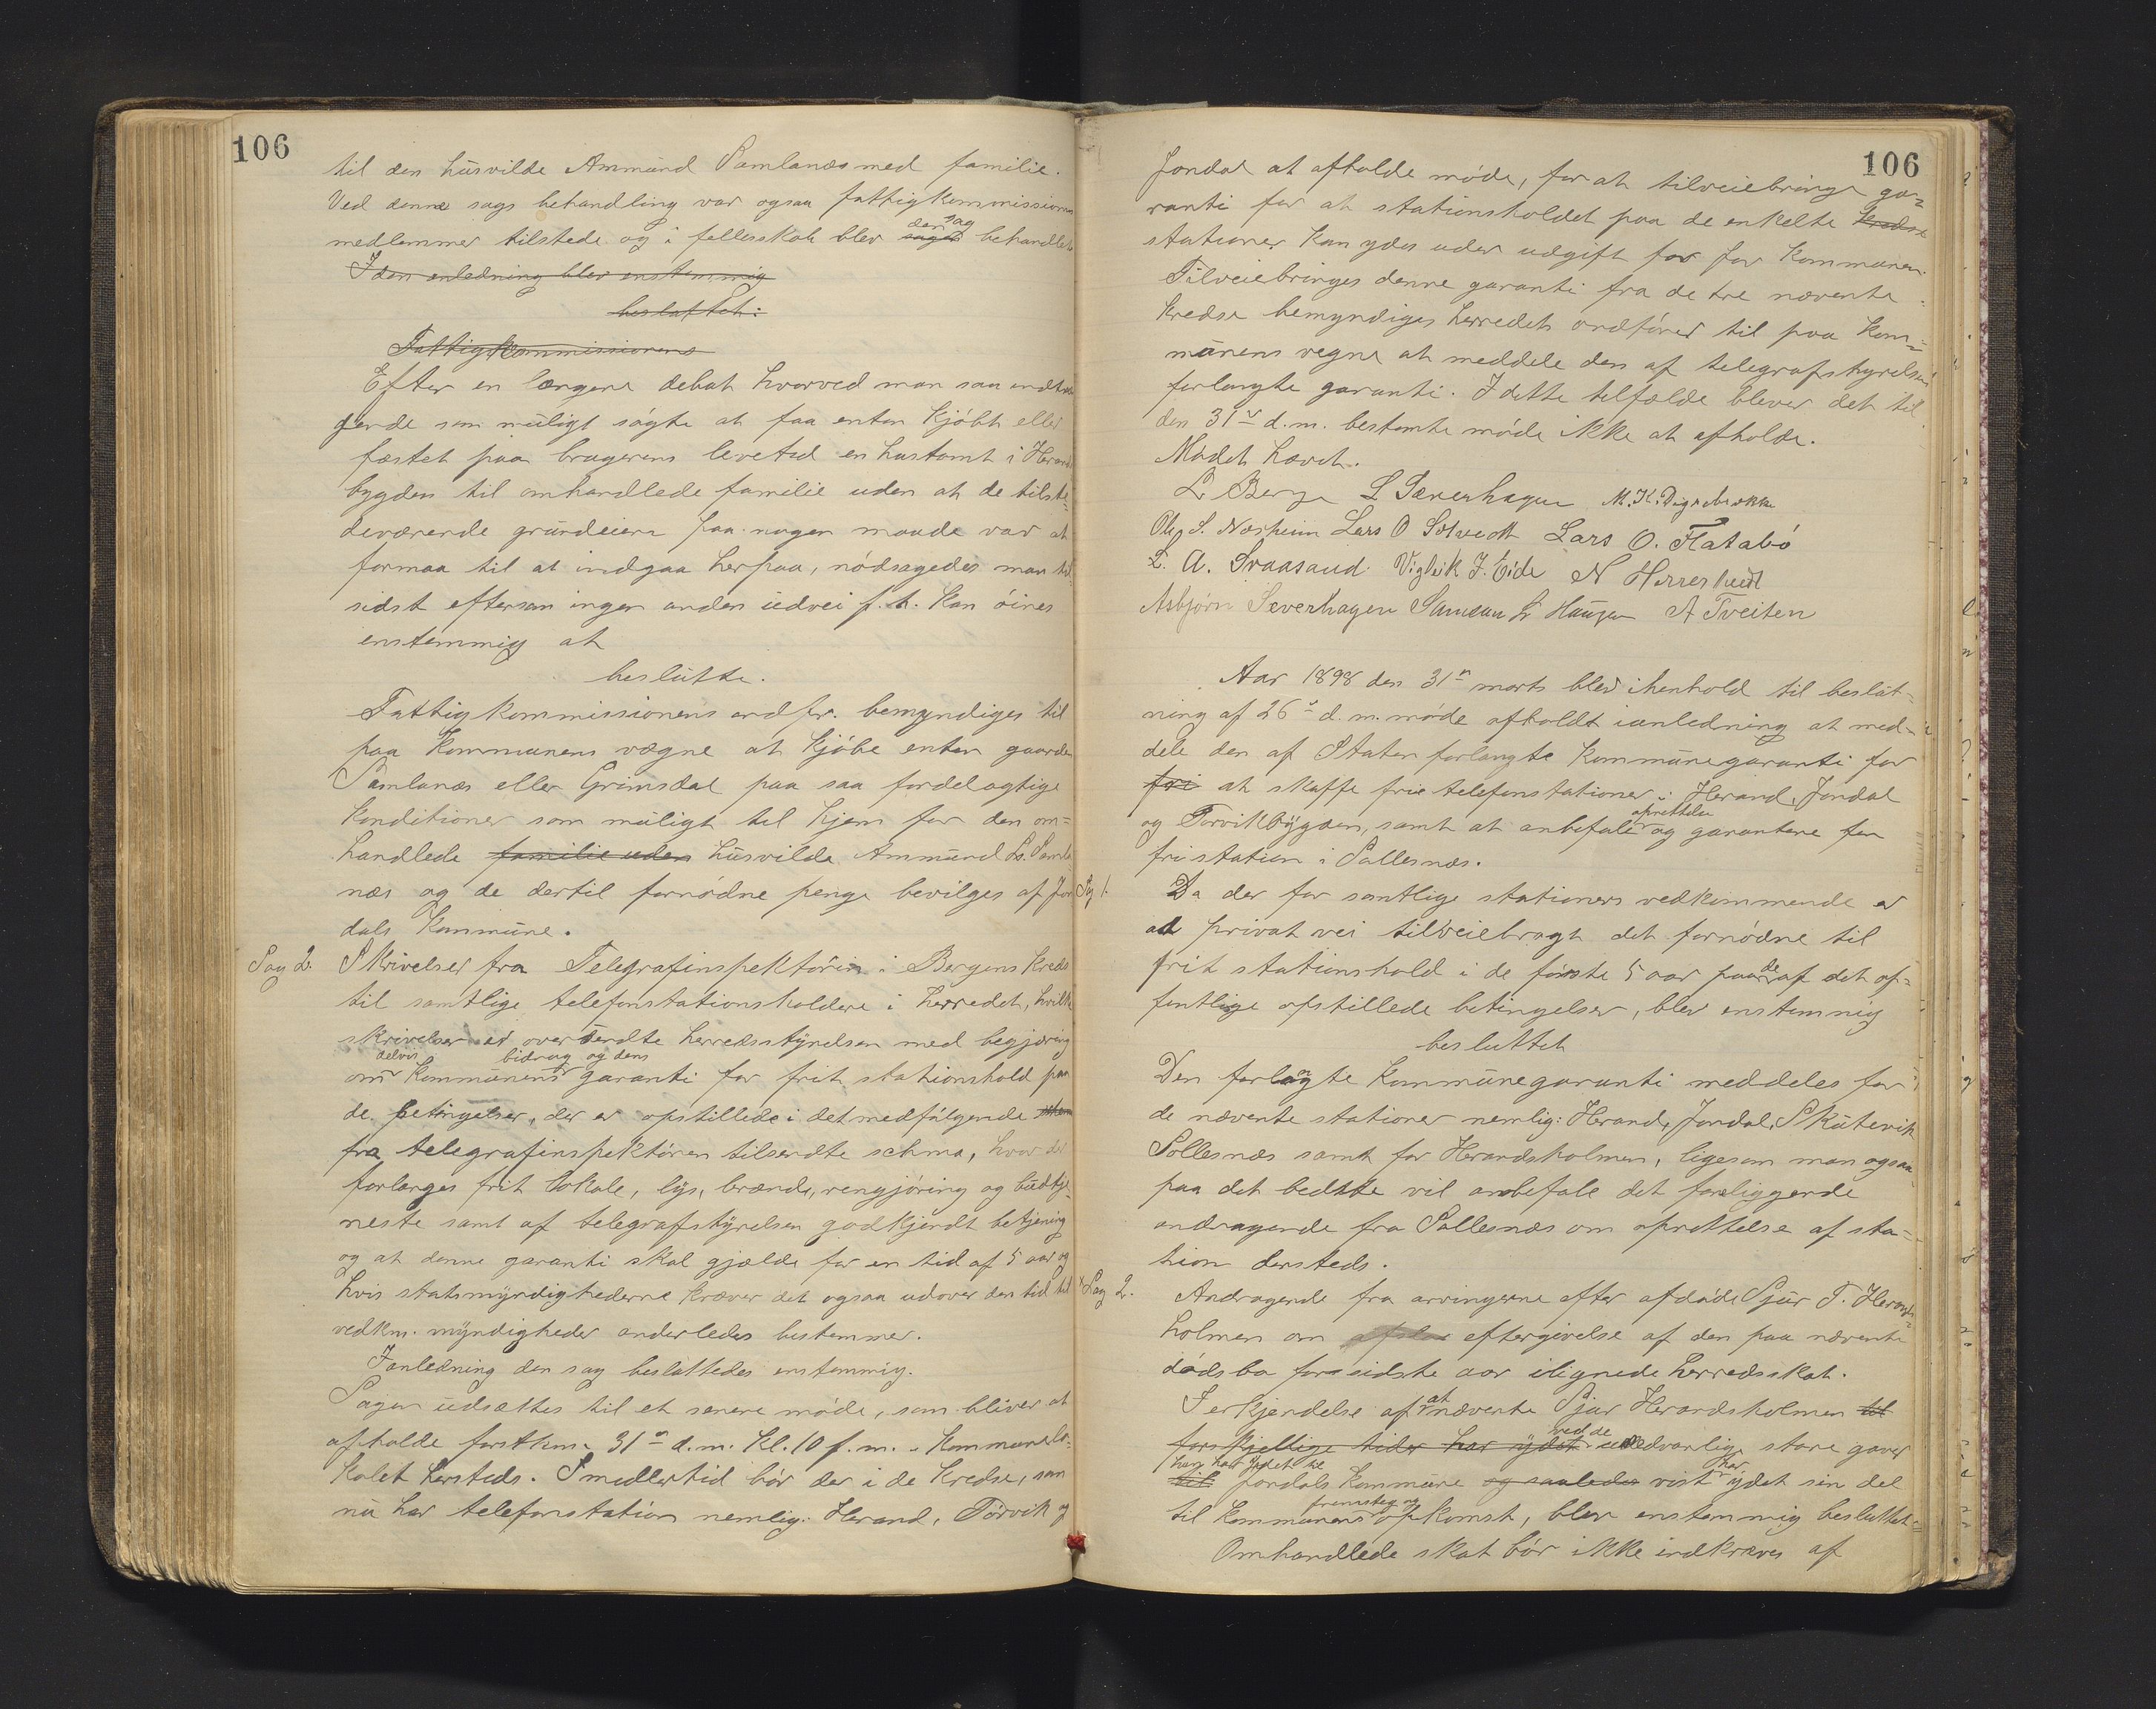 106
til den húsvilde Ammúnd Samlanæs med familie.
Ved denne sags behandling var ogsaa fattigkommissionens
medlemmer tilstede og i fellesskab blev den sag sagen behandlet
I den anledning blev enstemmig
besluttet:
Fattigkommissionens
Efter en længere debat hvorved man saa indtræn
gende som múligt søgte at faa enten kjøbt eller
fæstet paa brugerens levetid en hustomt i Herand
bygden til omhandlede familie uden at de tilste
deværende grúndeiere paa nogen maade var at
formaa til at indgaa herpaa, nødsagedes man til
sidst eftersom ingen anden údvei f. t. kan øines
enstemmig at
beslútte.
Fattigkommissionens ordfør. bemyndiges til
paa Kommunens vægne at kjøbe enten gaarden
Samlanæs eller Grimsdal paa saa fordelagtige
Konditioner som múligt til hjem for den om=
handlede familie uden húsvilde Ammúnd Ls. Samla
næs og de dertil fornødne penge bevilges af Jon
dals Kommúne.
Sag 2. Skrivelser fra Telegrafinspektøren i Bergens Kreds
til samtlige telefonstationsholdere i herredet, hvilke
skrivelser er oversendte herredsstyrelsen med begjæring
delvis bidrag og dens
om Kommúnens garanti for frit stationshold paa
de betingelser, der er opstillede i det medfølgende
fra telegrafinspektøren tilsendte schma, hvor der
forlanges frit lokale, lys, brænde, rengjøring og búdtje
neste samt af telegrafstyrelsen godkjendt betjening
og at denne garanti skal gjælde for en tid af 5 aar og
hvis statsmyndighederne kræver det ogsaa udover den tid til
vedkm. myndigheder anderledes bestemmer.
I anledning den sag besluttedes enstemmig.
Sagen údsættes til et senere møde, som bliver at
afholde førstkm. 31n d.m. Kl. 10 f.m. i Kommunelo-
kalet hersteds. Imidlertid bør der i de kredse, som
nú har telefonstation nemlig: Herand, Torvik og
106
Jondal at afholde møde, for at tilveiebringe ga=
ranti for at stationsholdet paa de enkelte kredse
stationer kan ydes uden udgift for for Kommunen.
Tilveiebringes denne garanti fra de tre nævnte
Kredse bemyndiges herredets ordfører til paa Kom=
múnens vegne at meddele den af telegrafstyrelsen
forlangte garanti. I dette tilfælde bliver det til
den 31te d.m. bestemte møde ikke at afholde.
Mødet hævet.
L Berge L Sæverhagen M. K. Digrebrække
Ole S. Næsheim Lars O Solvedt Lars O. Flatabø
L. A. Svaasand Vigleik J. Eide N Herrestvedt
Asbjørn Sæverhagen Samson L Haugen A Tveiten
Aar 1898 den 31n marts blev i henhold til beslút-
ning af 26n d.m. møde afholdt i anledning at med-
dele den af Staten forlangte Kommúnegaranti for
fri at skaffe frie telefonstationer i Herand, Jondal
oprettelse
og Torvikbygden, samt at anbefale og garantere for
fri station i Sollesnæs.
Sag 1. Da der for samtlige stationers vedkommende er
ad privat vei tilveiebragt det fornødne til
frit stationshold i de første 5 aar paa de af det of-
fentlige opstillede betingelser, blev enstemmig
besluttet
Den forlangte Kommúnegaranti meddeles for
de nævnte stationer nemlig: Herand, Jondal, Skútevik
Sollesnæs samt for Herandsholmen, ligesom man ogsaa
paa det bedste vil anbefale det foreliggende
andragende fra Sollesnæs om oprettelse af sta=
tion dersteds.
Sag 2. Andragende fra arvingerne efter afdøde Sjur T. Herands
holmen om eftergivelse af den paa nævnte
dødsbo for sidste aar ilignede herredsskat.
I erkjendelse af at nævnte Sjur Herandsholmen til
forskjellige tider har ydet ved de uædvanlige store gaver
han har skjenket til Jondals Kommúne og saaledes vist har ydet sin del
fremsteg og
til Kommunens opkomst, blev enstemmig besluttet
Omhandlede skat bør ikke indkræves af